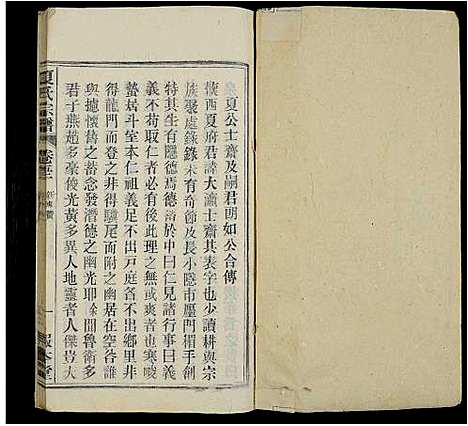 夏公士齋及嗣君朗如公合傳
漢西夏府君諱大瀛士齋其表字也少讀耕與宗
族聚處錄錄未有奇節及長小隱市廛門楣手創
特其生有隱德焉德諭於中曰仁見諸行事曰義
義不苟取仁者必有後此理之無或爽者也寒唆
蟄居斗室本仁祖義足不出戸庭名不出鄉里非
得龍門而登之非得驥尾而附之幽居在空谷誰
與攄懷舊之蓄念發潛德之幽光耶余聞魯衛多
君子燕趙多豪俊光黃多異人地靈者人傑豈大
夏氏宗譜
一
報本堂